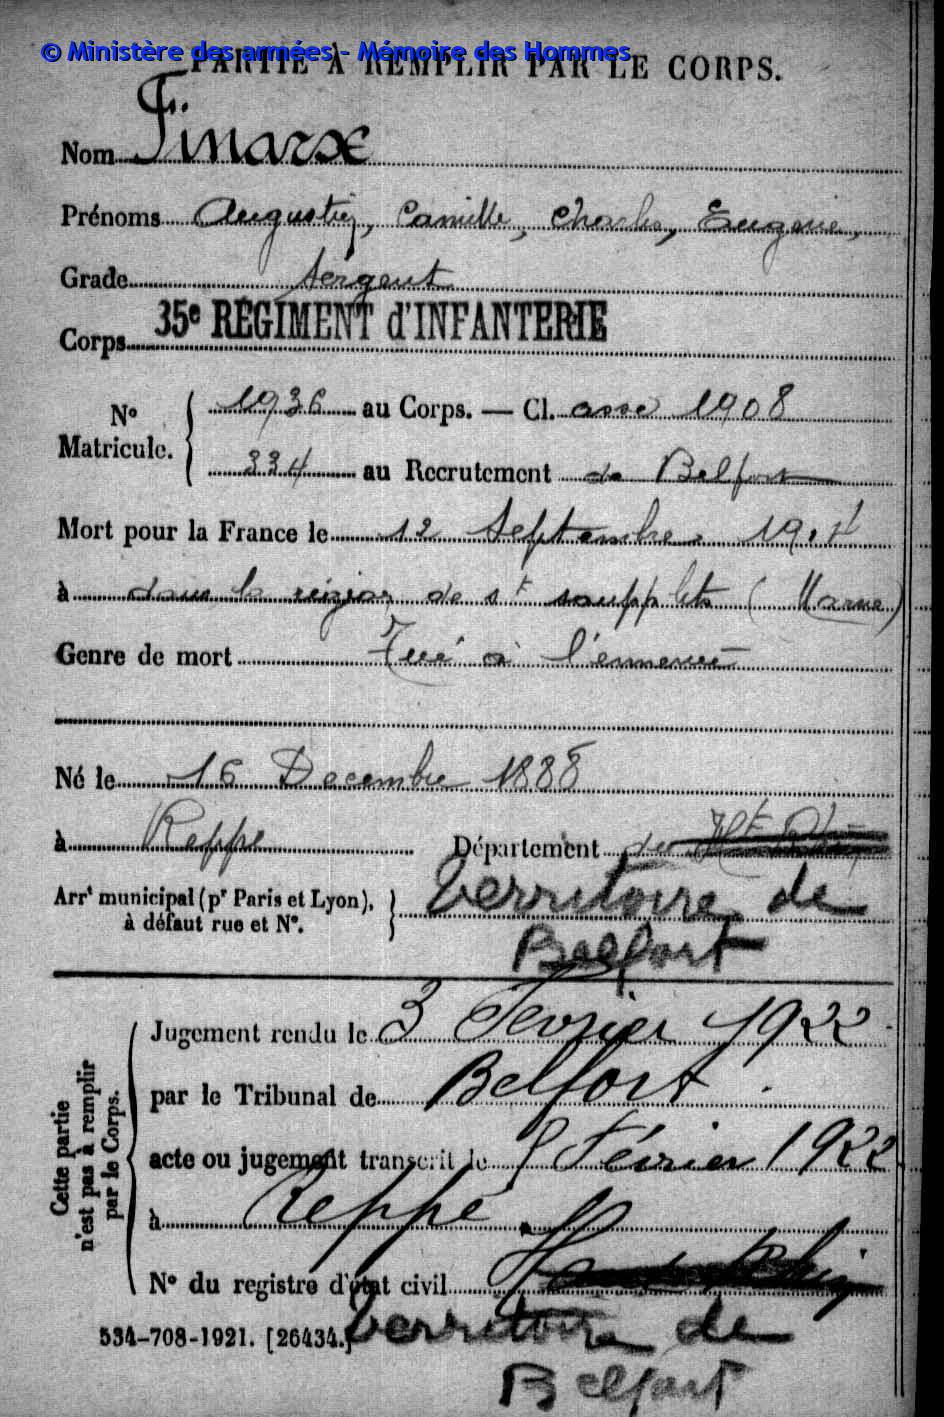 © Ministère des armées - Mémoire des Hommes
PARTIE À REMPLIR PAR LE CORPS.
Nom Finarx
Prénoms Augustin, Camille, Charles, Eugène,
Grade Sergent
Corps 35e RÉGIMENT d'INFANTERIE
N° Matricule. 1936 au Corps. — Cl. asse 1908
334 au Recrutement de Belfort
Mort pour la France le 12 Septembre 1914
à dans la région de St soupplets (Marne)
Genre de mort Tué à l'ennemi
Né le 16 Decembre 1888
à Reppe Département du Ht Rhin
Arrt municipal (pr Paris et Lyon), à défaut rue et N°. Territoire de
Belfort
Cette partie n'est pas à remplir par le Corps.
Jugement rendu le 3 Fevrier 1922.
par le Tribunal de Belfort.
acte ou jugement transcrit le Février 1922
à Reppe.
N° du registre d'état civil Haut Rhin
534-708-1921. [26434.] Territoire de
Belfort